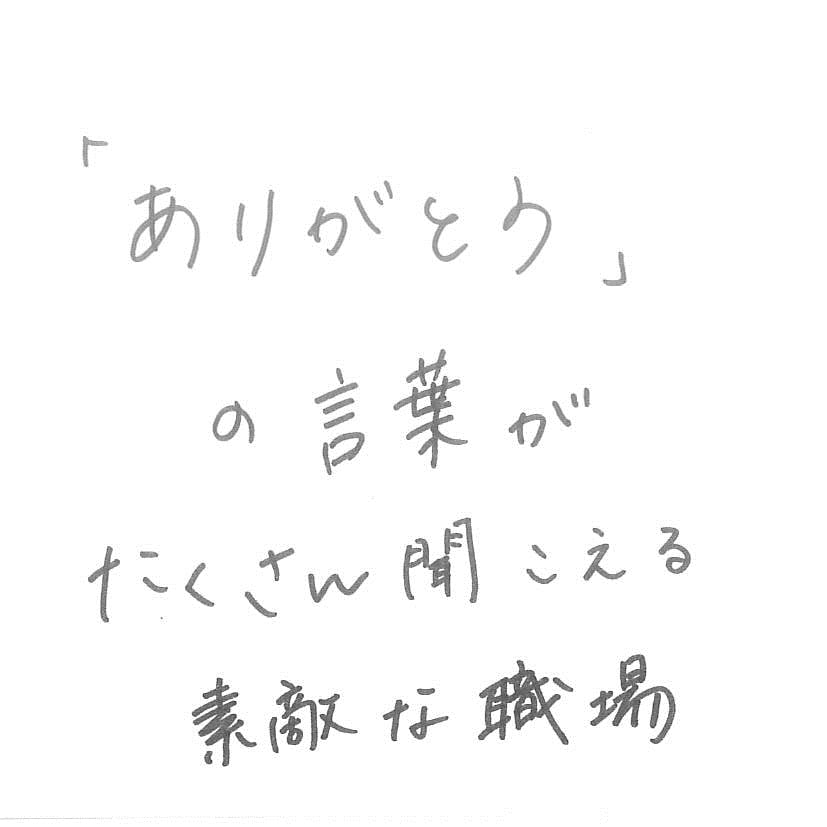 「ありがとう」
の言葉が
たくさん聞こえる
素敵な職場